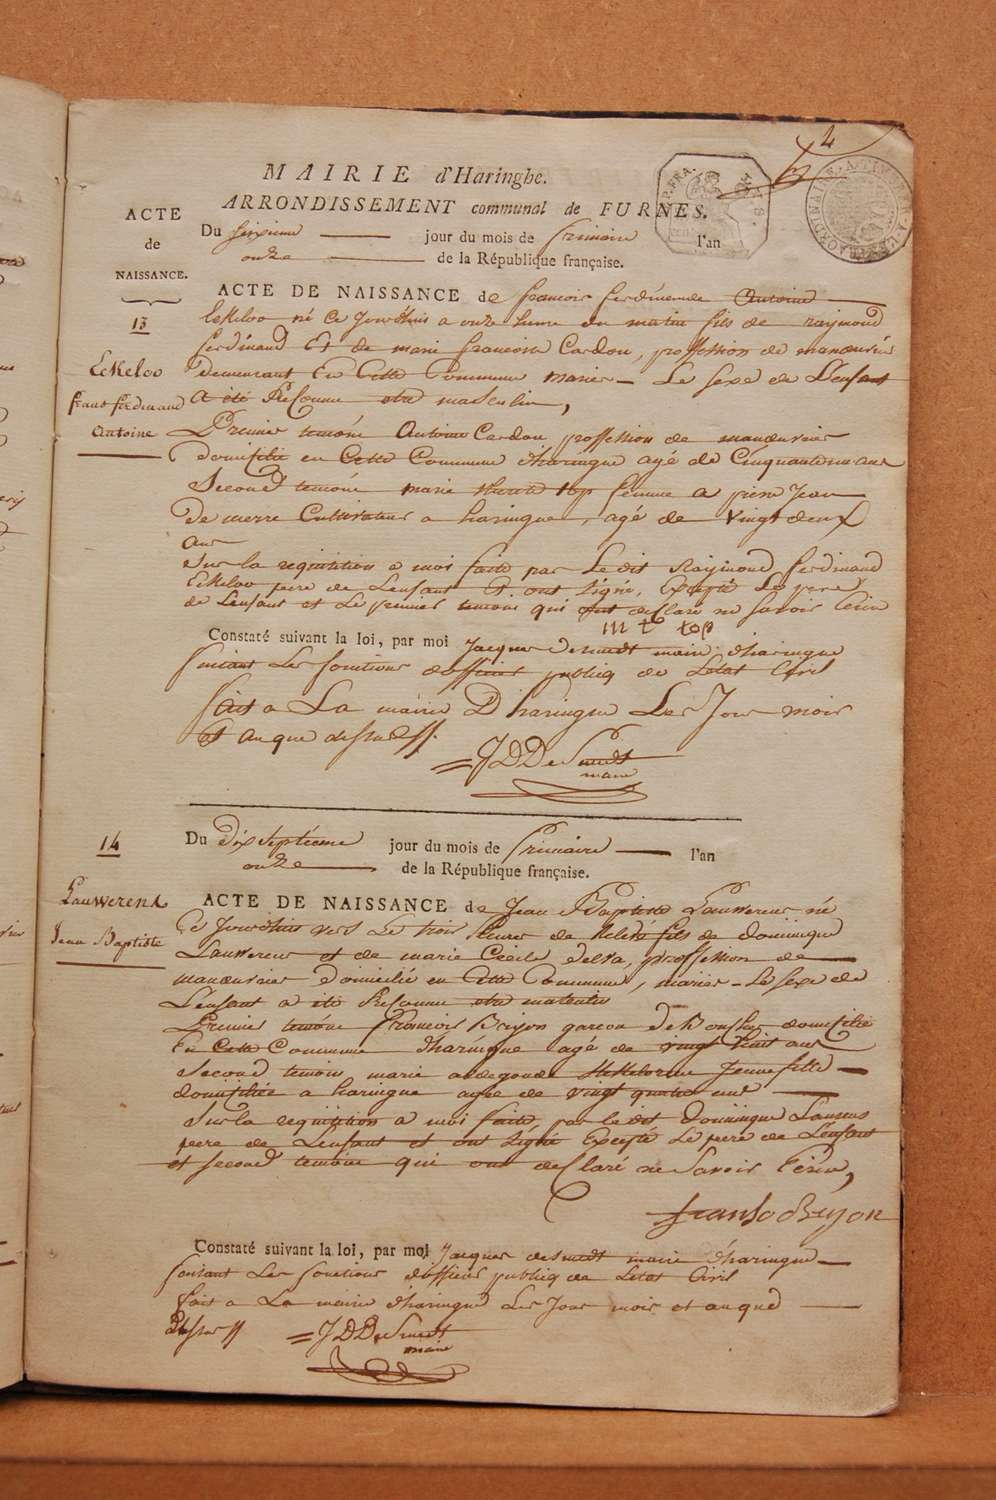 4
MAIRIE d'Haringhe.
ARRONDISSEMENT communal de FURNES.
ACTE
de
NAISSANCE.
Du sixieme jour du mois de frimaire l'an
onze de la République française.
ACTE DE NAISSANCE de francois ferdinende Antoine
13
Eckeloo
frans ferdinand
Antoine
Eckeloo né ce Jourdhuis a onze heure du matin fils de raymond
ferdinand Et de marie francoise Cardon, proffession de manoeuvrié
demeurant En Cette Commune mariés - Le sexe de L'enfant
a été Reconnu etre masculin,
Premier temoin Antoine Cardon proffession de manoeuvrier
domicilié en Cette Commune d'haringue agé de Cinquante un ans
Second temoin marie top femme a piere Jean
De merre Cultivateur a haringue, agé de vingt deux
ans
Sur la requisition a moi faite par Le dit Raijmond ferdinand
Eckeloo pere de Lenfant Et ont signé, Excepté Le pere
de Lenfant et Le premier temoin qui ont declaré ne savoir Ecrire
m t top
Constaté suivant la loi, par moi Jacques desmedt maire d'haringue
faisant Les fonctions d'officier publiq de L'etat Civil
fait a La mairie D'haringue Les Jour mois
et an que dessus
JDDeSmedt
maire
14
Lauwerens
Jean Baptiste
Du Dix septiéme jour du mois de Frimaire l'an
onze de la République française.
ACTE DE NAISSANCE de Jean Baptiste Lauwerens né
Ce Jourdhuis vers Le trois heures de Relevé fils de dominique
Lauwerens et de marie Cecile delva, proffession de
manoeuvrier Domicilié en Cette Commune, mariés - Le sexe de
L'enfant a été Reconnu etre masculin
Premier temoin Francois Brijon garcon domicilié
En Cette Commune d'haringue agé de vingt huit ans
Second temoin marie aldegonde Jeune fille
domiciliée a haringue agée de vingt quatre ans
Sur la requisition a moi faite par le dit Dominique
pere de Lenfant et ont signé Excepté Le pere de L'enfant
et second temoin qui ont declaré ne Savoir Ecrire,
franso Brijon
Constaté suivant la loi, par moi Jacques desmedt maire d'haringue
faisant Les fonctions d'officier publiq de Letat Civil
fait a La mairie d'haringue Les Jour mois et an que
dessus
JDDeSmedt
maire